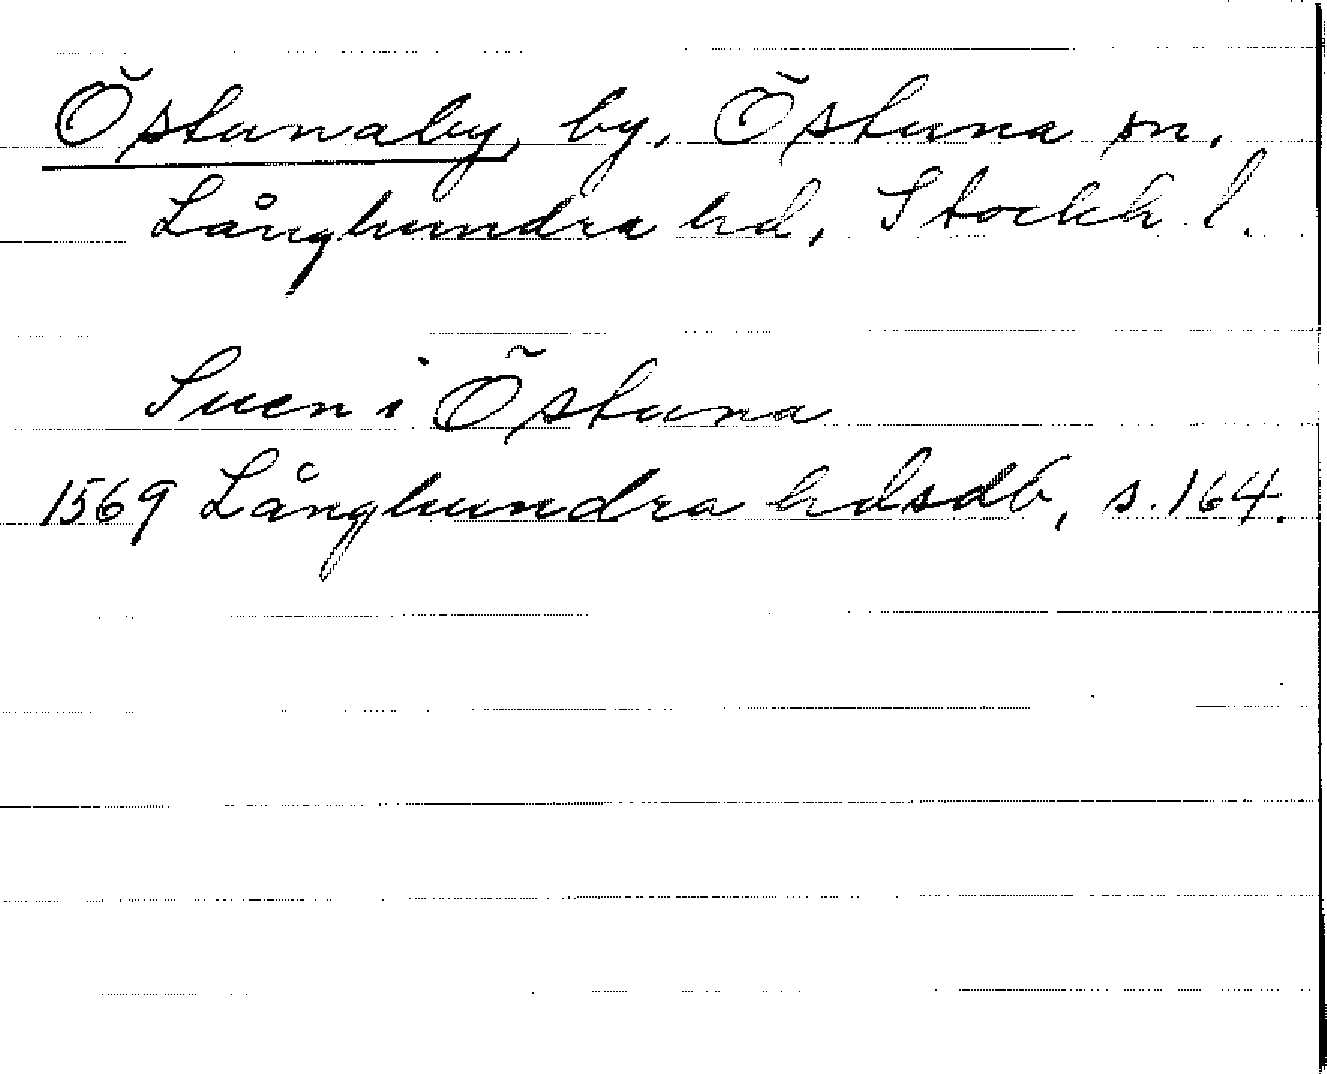 Östunaby, by, Östuna sn.
Långhundra hd, Stockh. l.
Suen i Östuna
1569 Långhundra hdsdb, s. 164.